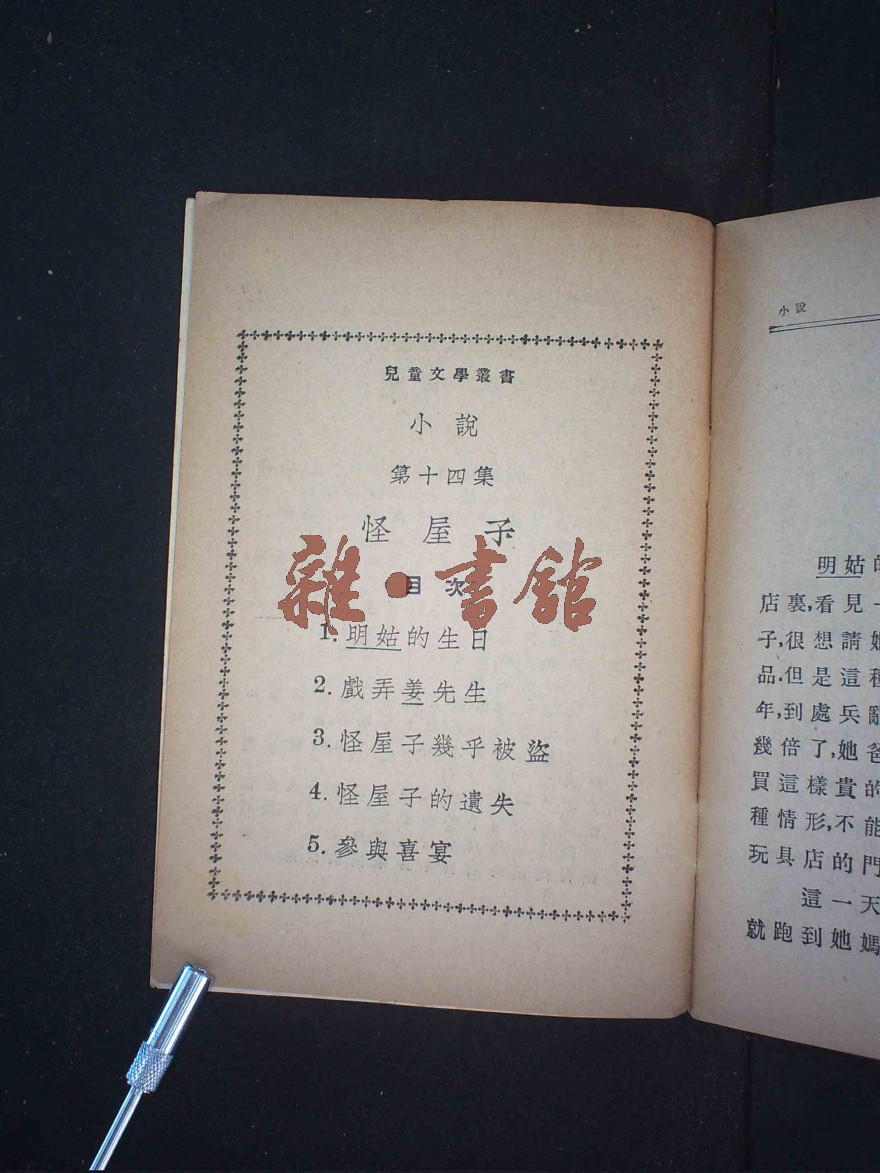 兒童文學叢書
小說
第十四集
怪屋子
目次
1. 明姑的生日
2. 戲弄姜先生
3. 怪屋子幾乎被盜
4. 怪屋子的遺失
5. 參與喜宴
雜·書館
小說
明姑的
店裏,看見一
子,很想請她
品.但是這種
年,到處兵亂
幾倍了,她爸
買這樣貴的
種情形,不能
玩具店的門
這一天
就跑到她媽